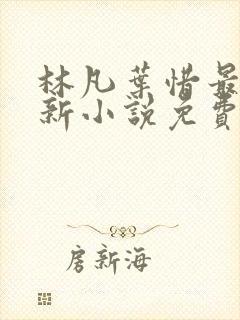 林凡葉惜最
新小說免費
房新海